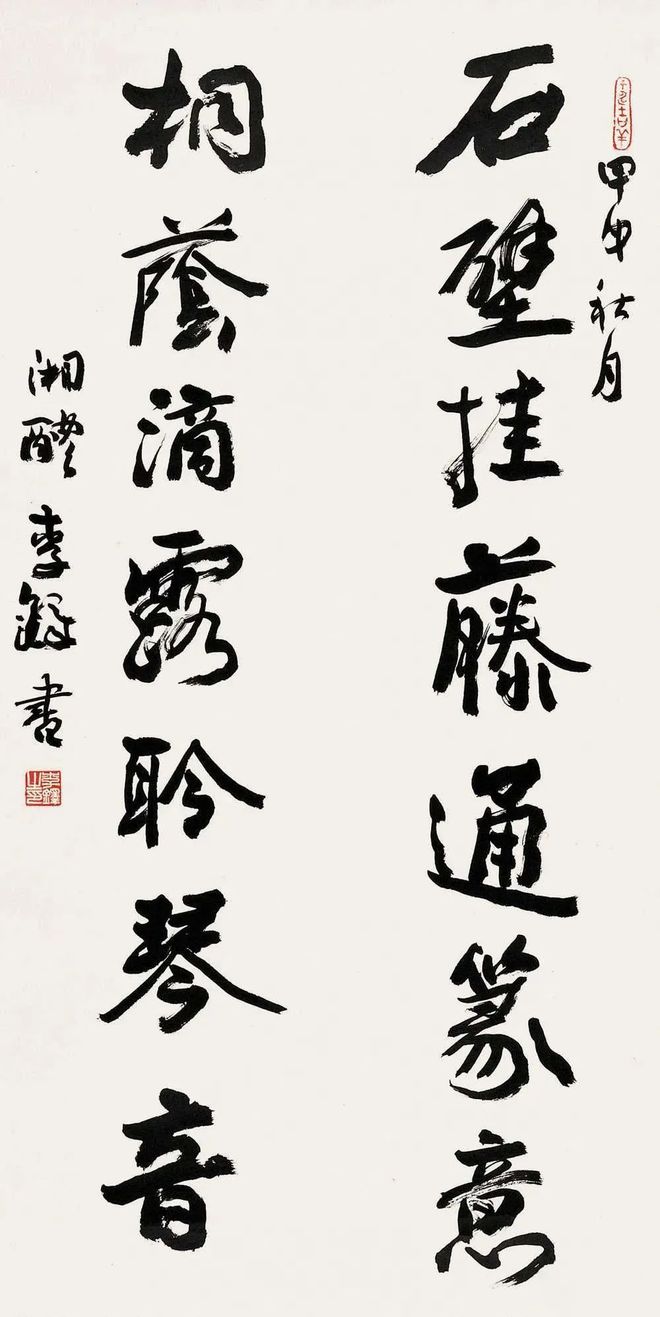 甲申秋月
石壁挂藤通篆意
桐蔭滴露聆琴音
湘醴李鐸書